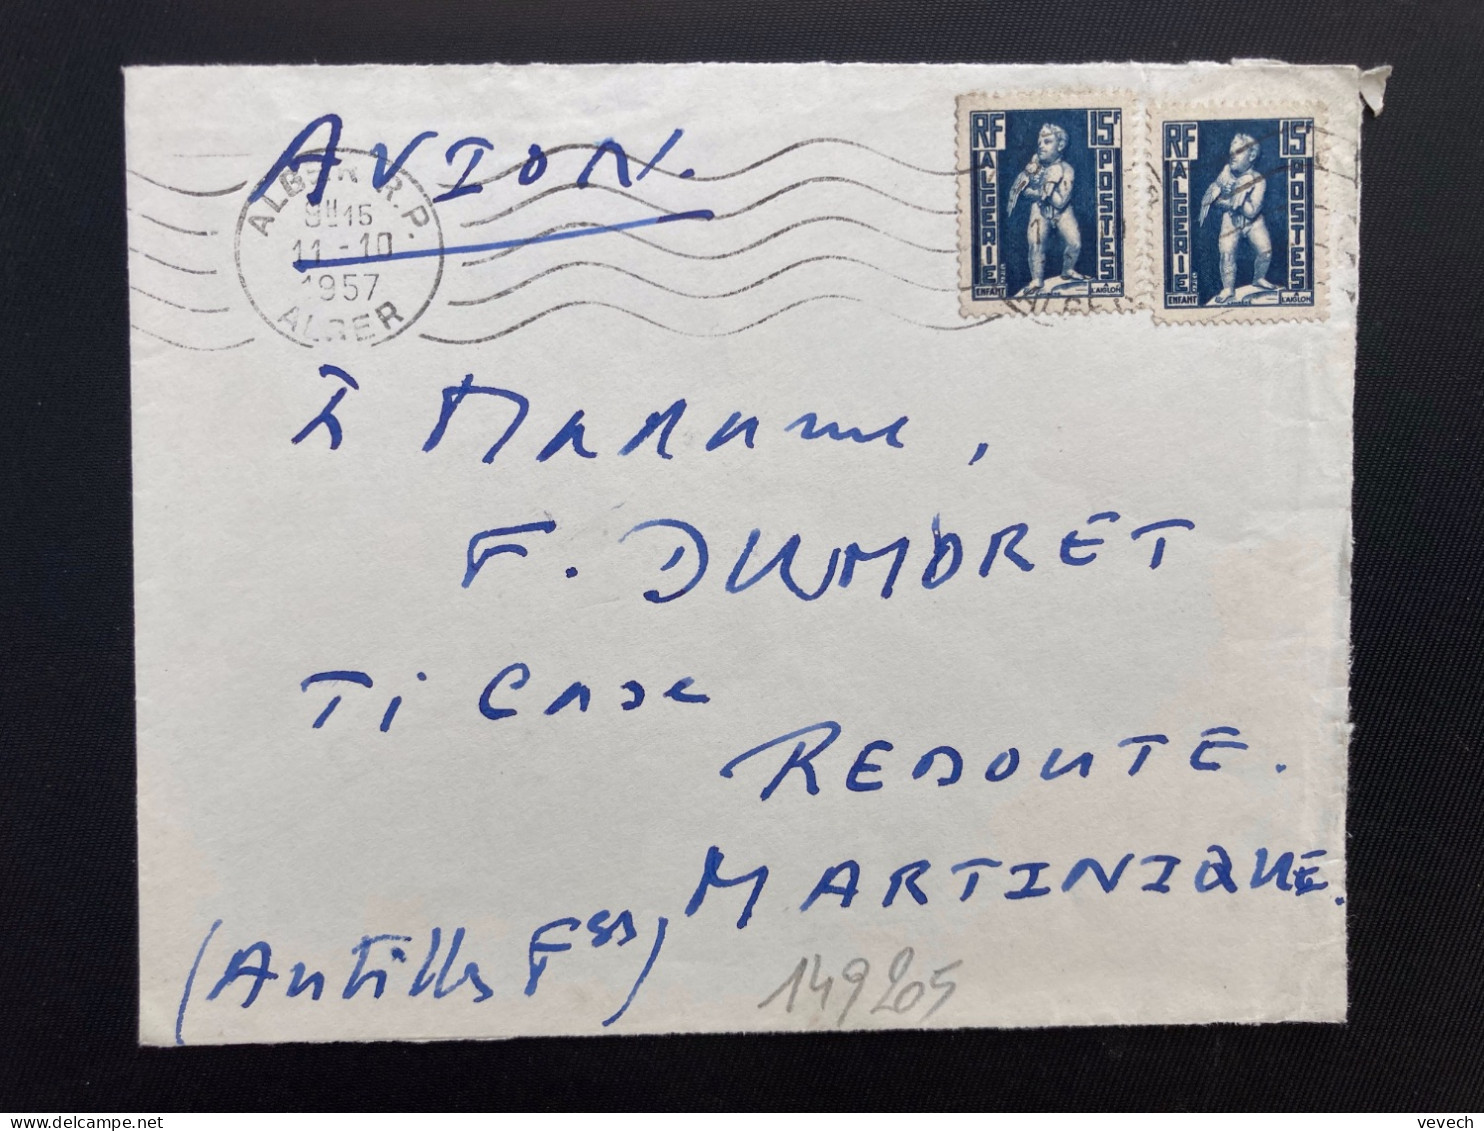 AVION.
ALGER R.P.
9H15
11-10
1957
ALGER
RF 15F
ALGERIE POSTES
ENFANT A L'AIGLON
RF 15F
ALGERIE POSTES
ENFANT A L'AIGLON
à Madame,
F. DUMORET
Ti Case
REDOUTE.
MARTINIQUE.
(Antilles Fses)
149205
vevech